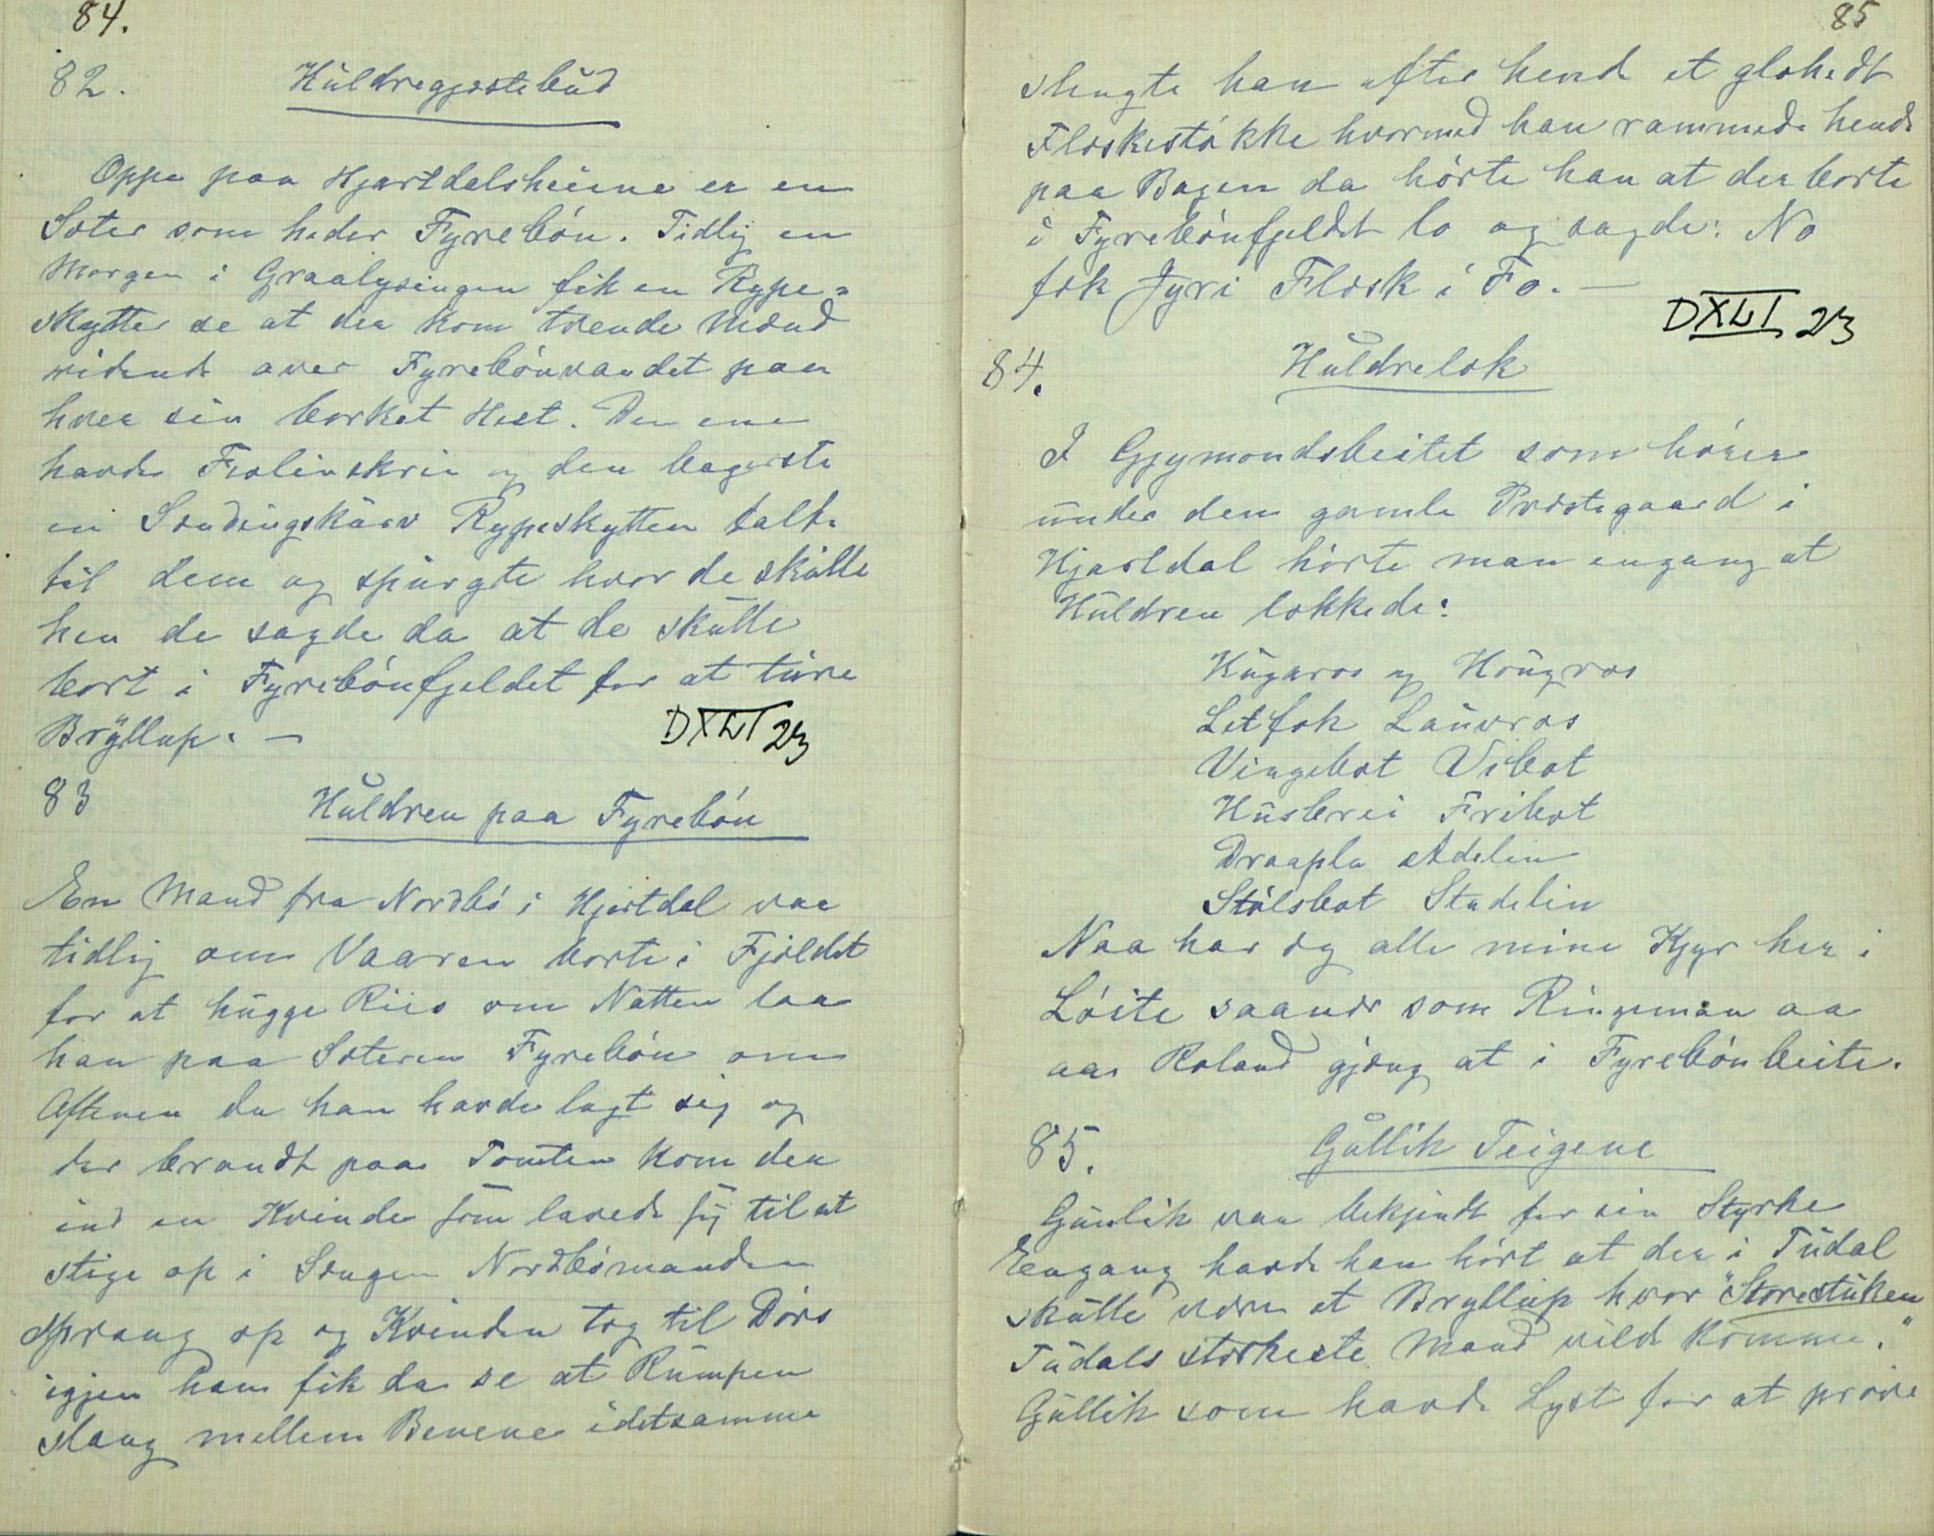 84.
82. Huldregjæstebud
Oppe paa Hjartdalsheiene er en
Sæter som heder Fyrebön. Tidlig en
Morgen i Graalysingen fik en Rype-
skytter se at der kom trende Mænd
ridende over Fyrebönvandet paa
hver sin borket Hest. Den ene
havde Fiolinskrin og den bagerste
en Sendingskurv Rypeskytten talte
til dem og spurgte hvor de skulle
hen de sagde da at de skulle
bort i Fyrebönfjeldet for at ture
Bryllup. —
DXLI 23
83 Huldren paa Fyrebön
En Mand fra Nordbö i Hjartdal var
tidlig om Vaaren borte i Fjeldet
for at hugge Riis om Natten laa
han paa Sæteren Fyrebön om
Aftenen da han havde lagt sig og
der brandt paa Tomten kom der
ind en Kvinde som lavede sig til at
stige op i Sengen Nordbömanden
sprang op og Kvinden tog til Dörs
igjen han fik da se at Rumpen
slang mellem Benene idetsamme
85
slengte han efter hende et glohedt
Fleskestökke hvormed han rammede hende
paa Bagen da hörte han at der borte
i Fyrebönfjeldet lo og sagde: No
fek Jyri Flesk i Fo. —
DXLI 23
84. Huldrelok
I Gjymondsbeitet som hörer
under den gamle Præstegaard i
Hjartdal hörte man engang at
Huldren lokkede:
Kugaros og Hougros
Letfok Lauvros
Vingebot Vibot
Husbrei Fribot
Draapla Adelin
Stölsbot Stadelin
Naa har eg alle mine Kjyr her i
Löite saanær som Ringeman aa
aa Roland gjeng at i Fyrebönbeite.
85. Gullik Teigene
Gunlik var bekjendt for sin Styrke
Engang havde han hört at der i Tudal
skulle være et Bryllup hvor "Storestuken
Tudals sterkeste Mand vilde komme."
Gullik som havde Lyst for at pröve